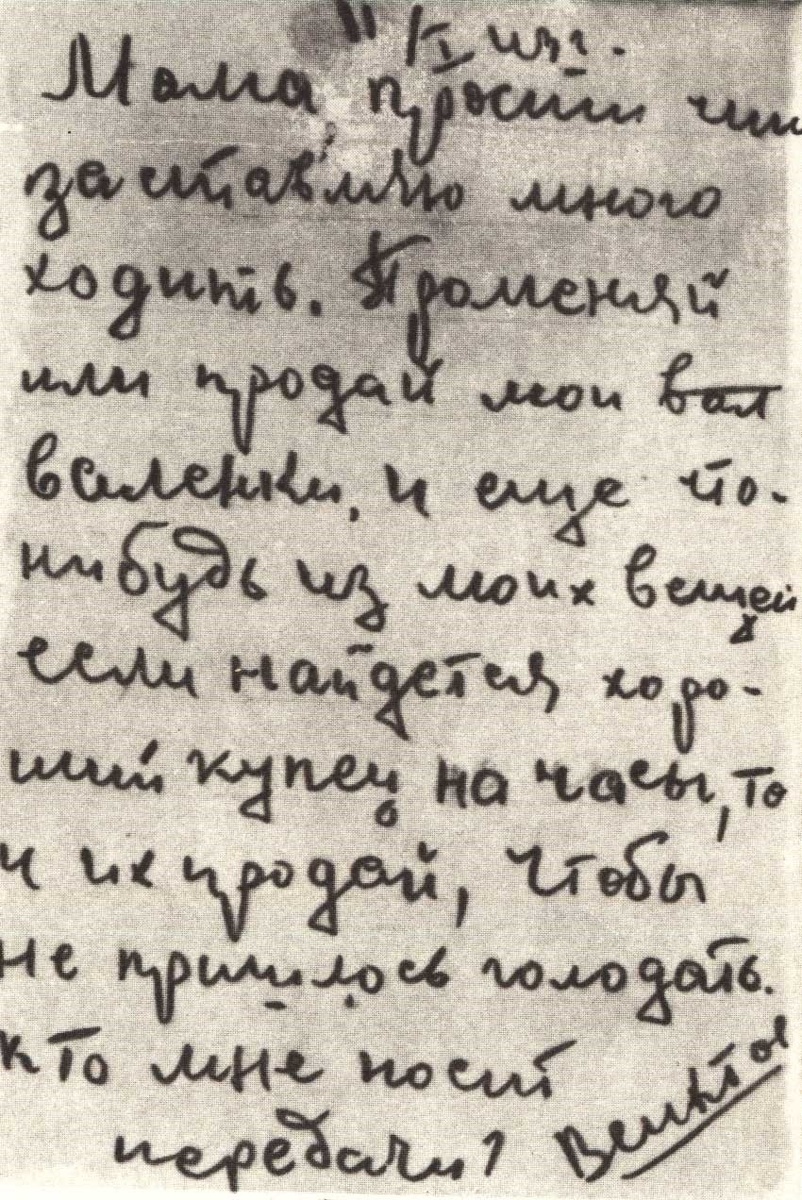 Мама, прости что
заставляю много
ходить. Променяй
или продай мои вал
валенки, и еще что-
нибудь из моих вещей
если найдется хоро-
ший купец на часы, то
и их продай, чтобы
не пришлось голодать.
кто мне носит
передачи?